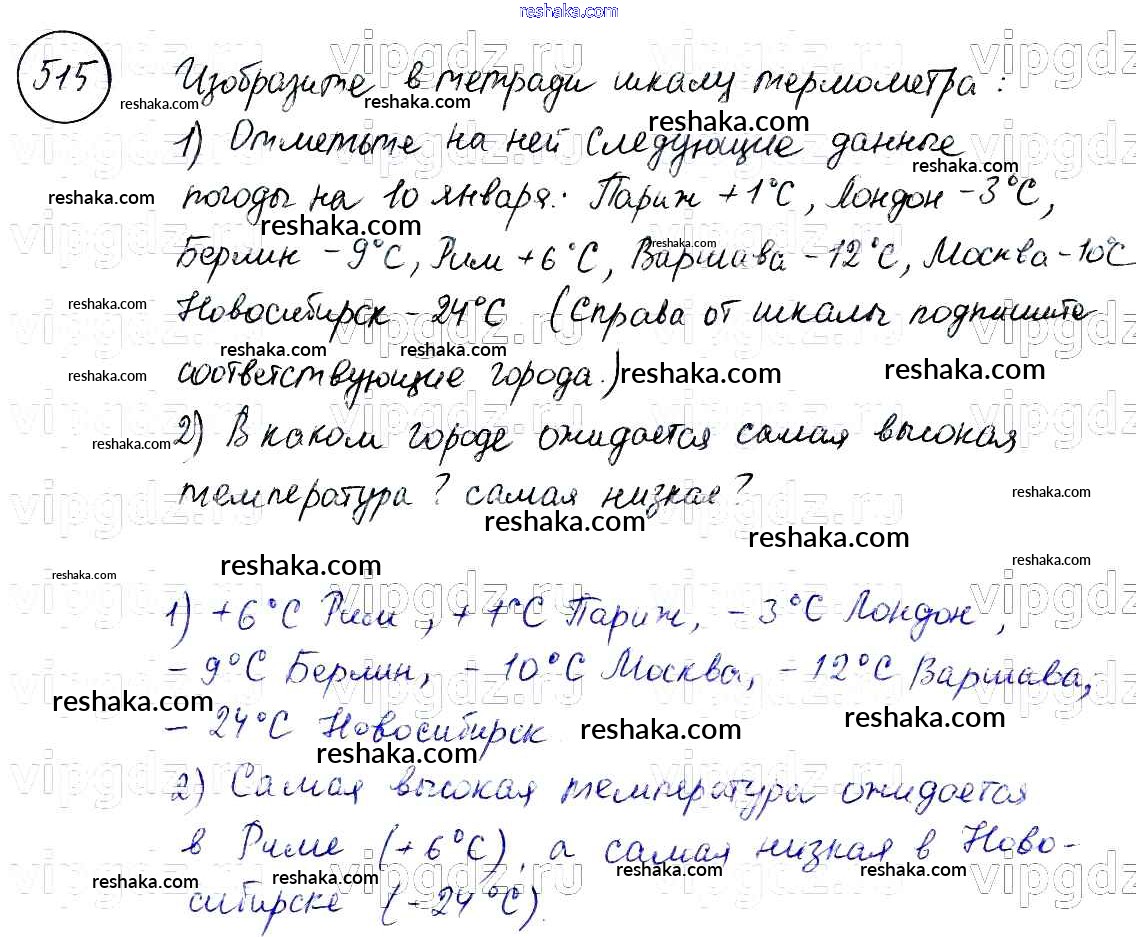 reshaka.com
515 Изобразите в тетради шкалу термометра:
1) Отметьте на ней следующие данные
погоды на 10 января: Париж +1°С, Лондон -3°С,
Берлин -9°С, Рим +6°С, Варшава -12°С, Москва -10°С
Новосибирск -24°С (Справа от шкалы подпишите
соответствующие города.)
2) В каком городе ожидается самая высокая
температура? самая низкая?
1) +6°С Рим, +1°С Париж, -3°С Лондон,
-9°С Берлин, -10°С Москва, -12°С Варшава,
-24°С Новосибирск
2) Самая высокая температура ожидается
в Риме (+6°С), а самая низкая в Ново-
сибирске (-24°С).